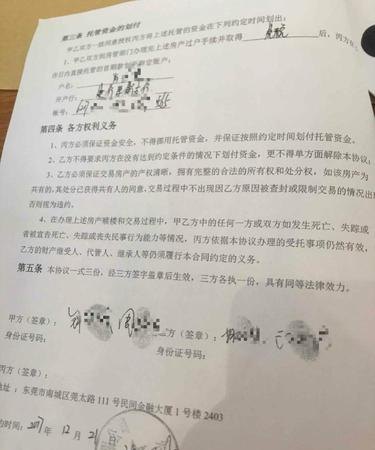 第三条 托管资金的划付
甲乙双方一致同意授权丙方将上述托管的资金在下列约定时间划出:
1、甲乙双方到房管部门办理完上述房产过户手续并取得 后,丙方在
户名:
开户行:
账号:
第四条 各方权利义务
1、丙方必须保证资金安全,不得挪用托管资金,并保证按照约定时间划付托管资金。
2、乙方不得要求丙方在没有达到约定条件的情况下划付资金,更不得单方面解除本协议;
3、乙方必须保证交易房产的产权清晰,拥有完整的合法的所有权和处分权,如该房产为
共有的,其处分已获得共有人的同意,交易过程中不出现因乙方原因被查封或限制交易的情况出
否则视为违约。
4、在办理上述房产赎楼和交易过程中,甲乙方中的任何一方或双方如发生死亡、失踪或
者被宣告死亡、失踪或丧失民事行为能力等情况,丙方依据本协议办理的受托事项仍然有效,
乙方的财产继受人、代管人、继承人等仍须履行本合同约定的义务。
第五条 本协议一式三份,经三方签字盖章后生效,三方各执一份,具有同等法律效力。
甲方(签章): 方(签章):
身份证号码: 身份证号码:
丙方(签章):
地址:东莞市南城区莞太路 111 号民间金融大厦 1 号楼 2403
约时间:2017年 12月 21